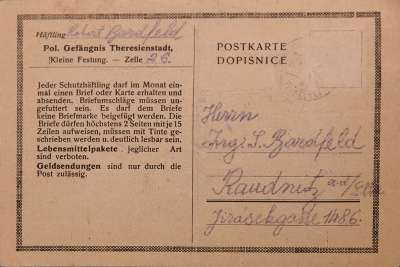 Häftling Robert Bardfeld
Pol. Gefängnis Theresienstadt,
(Kleine Festung. — Zelle 26.
Jeder Schutzhäftling darf im Monat ein-
mal einen Brief oder Karte erhalten und
absenden. Briefumschläge müssen un-
gefuttert sein. Es darf dem Briefe
keine Briefmarke beigefügt werden. Die
Briefe dürfen höchstens 2 Seiten mit je 15
Zeilen aufweisen, müssen mit Tinte ge-
schrieben werden u. deutlich lesbar sein.
Lebensmittelpakete jeglicher Art
sind verboten.
Geldsendungen sind nur durch die
Post zulässig.
POSTKARTE
DOPISNICE
Herrn
Ing. J. Bardfeld
Raudnitz a.d/Elbe
Jirásekgasse 1486.